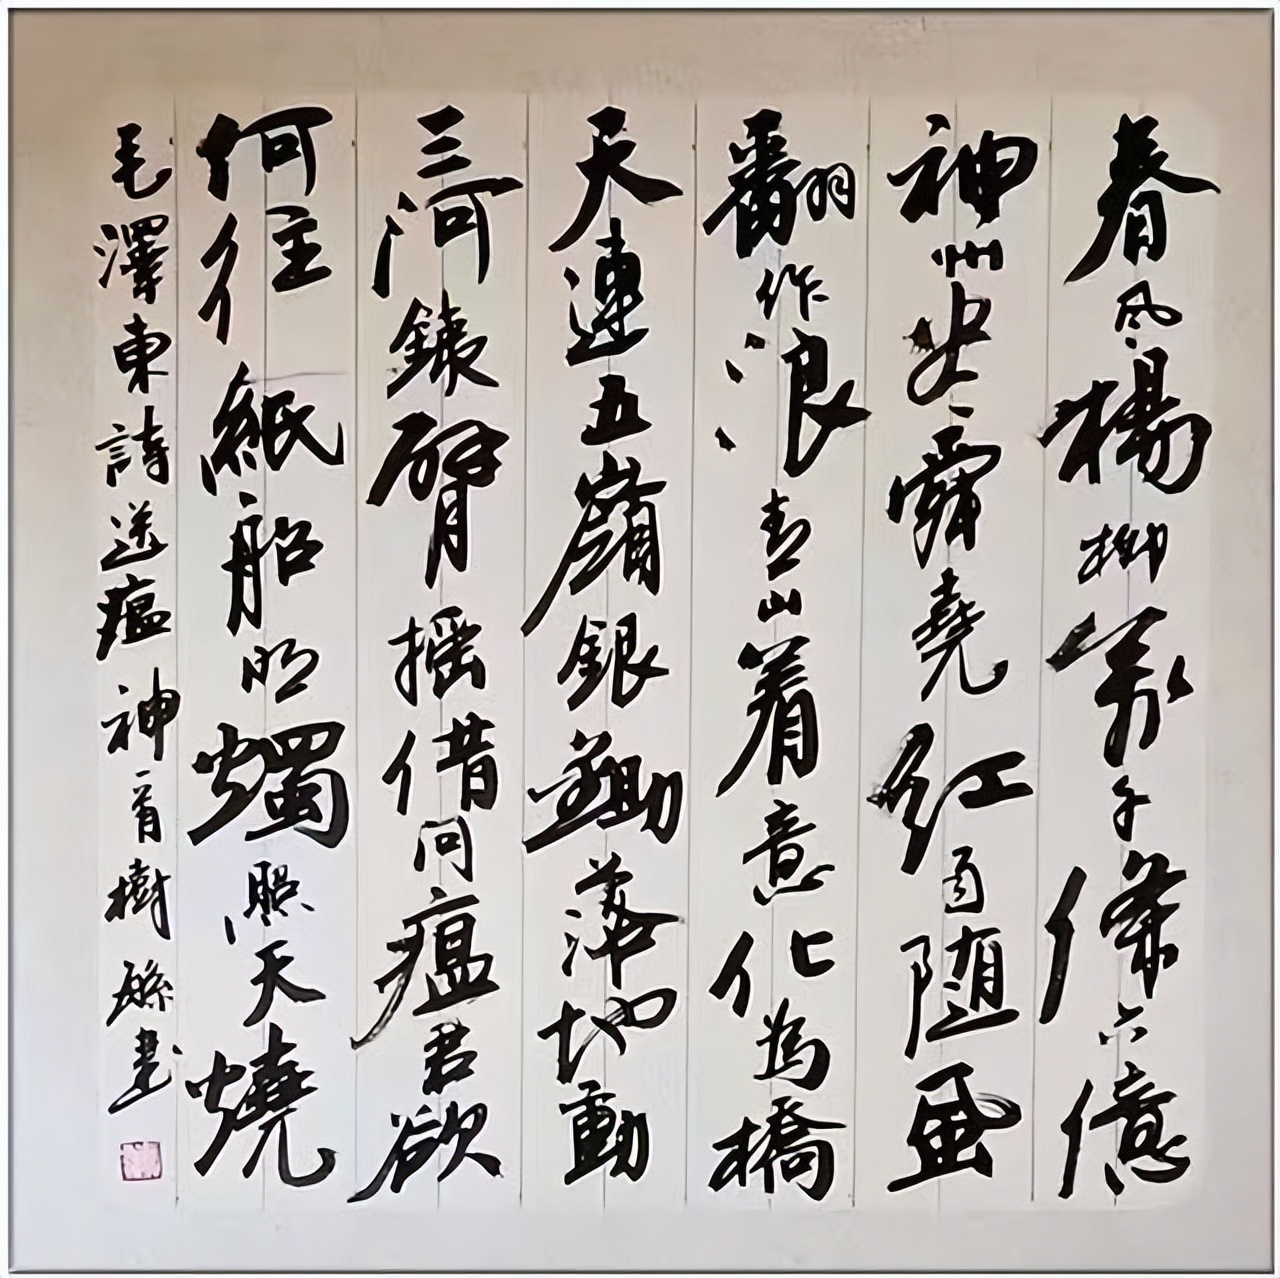 春风楊柳萬千條六億
神州尽舜堯紅雨随風
翻作浪青山着意化為橋
天連五嶺銀鋤落地動
三河鐵臂摇借問瘟君欲
何往紙船明燭照天燒
毛澤東詩送瘟神一首樹書